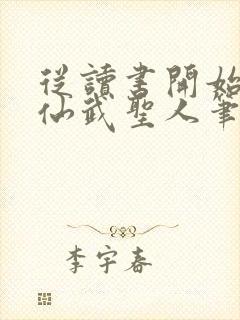 從讀書開始
仙武聖人筆
李宇春